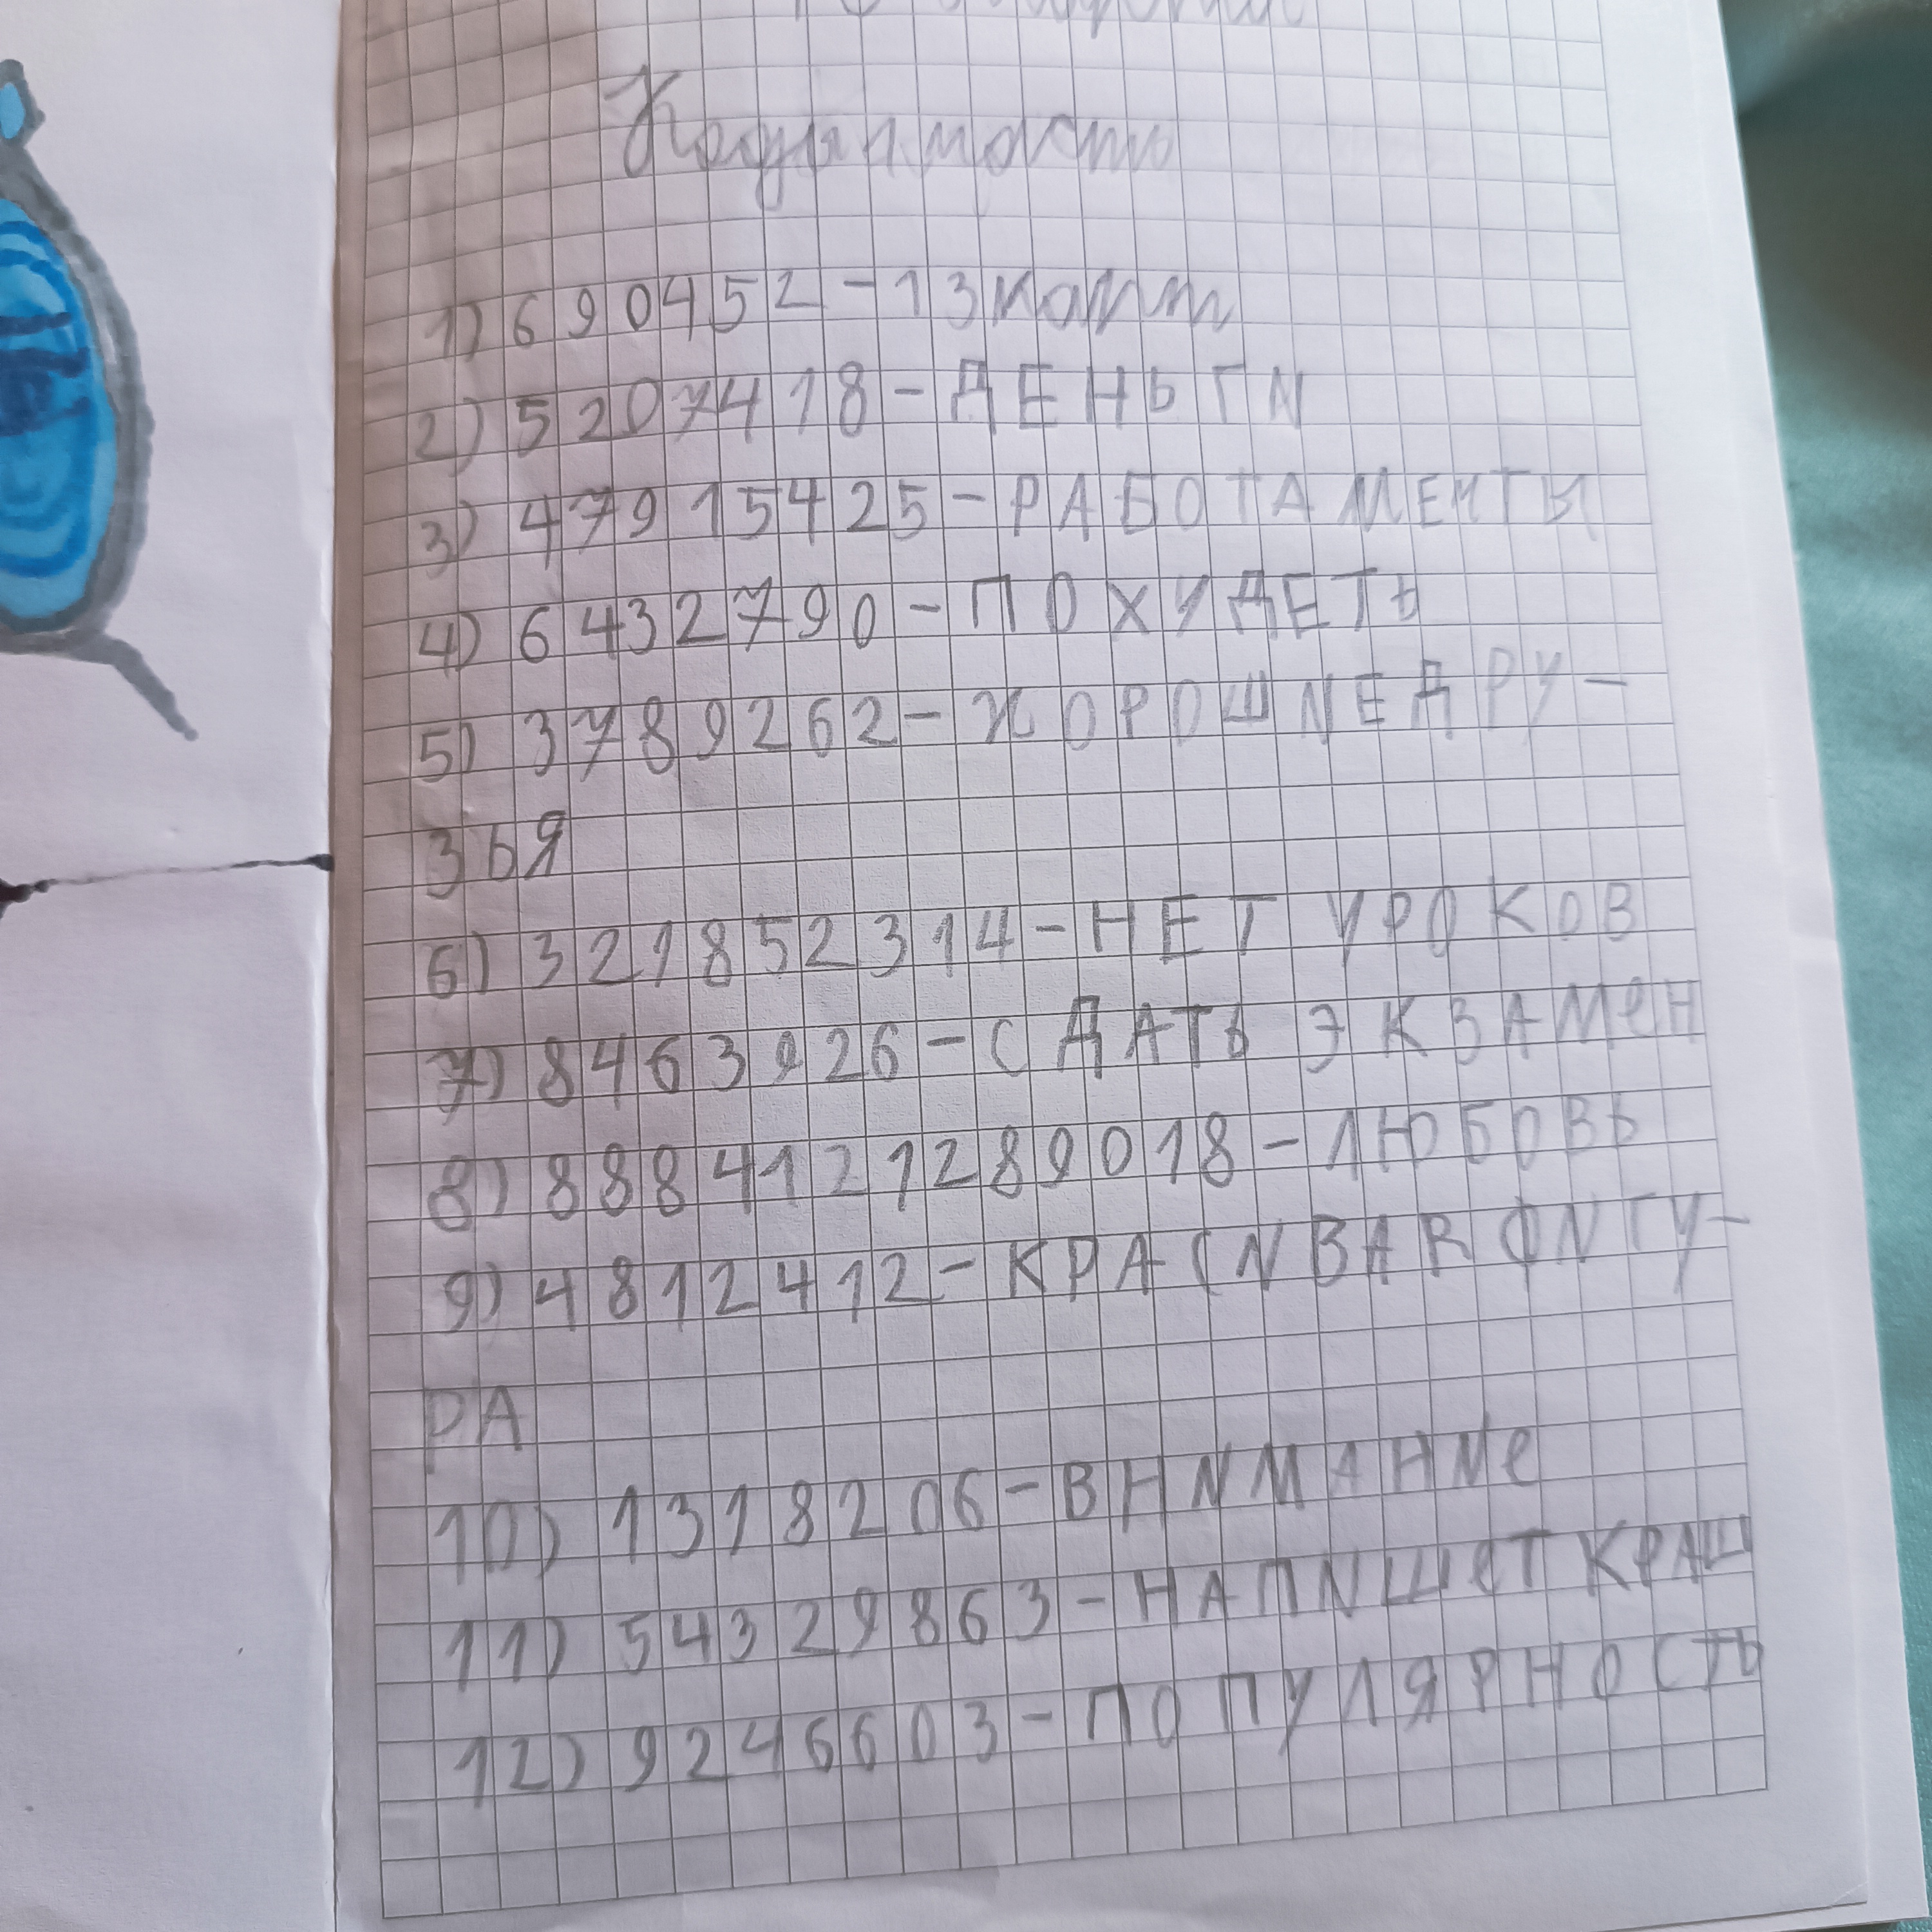 1) 690452 - 13 карт
2) 5207418 - ДЕНЬГИ
3) 479154 25 - РАБОТА МЕЧТЫ
4) 6432790 - ПОХУДЕТЬ
5) 3789262 - ХОРОШИЕ ДРУ-
ЗЬЯ
6) 321852314 - НЕТ УРОКОВ
7) 8463926 - СДАТЬ ЭКЗАМеН
8) 8884121289018 - ЛЮБОВЬ
9) 4812412 - КРАСИВАЯ ФИГУ-
РА
10) 1318206 - ВНИМАНИе
11) 54329863 - НАПИШеТ КРАШ
12) 9246603 - ПОПУЛЯРНОСТЬ